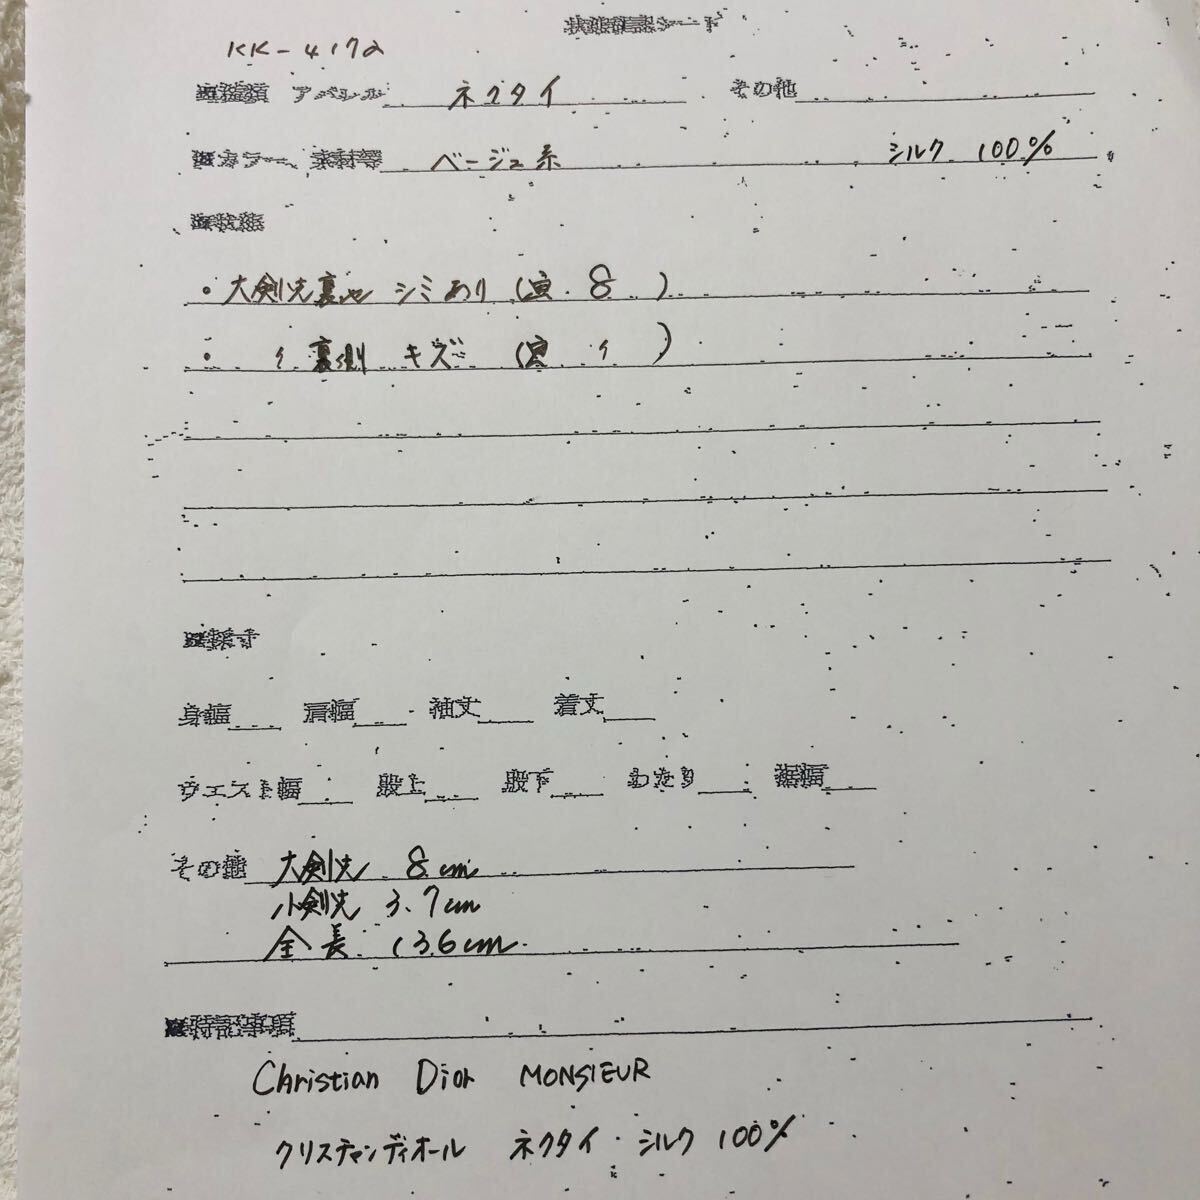 状態確認シート
KK-4172
■種類 アパレル ネクタイ その他
■カラー、素材等 ベージュ系 シルク 100%
■状態
・大剣先裏地 シミあり (写. 8 )
・ 〃 裏側 キズ (写 〃 )
■採寸
身幅 肩幅 袖丈 着丈
ウエスト幅 股上 股下 わたり 裾幅
その他 大剣先 8cm
小剣先 3.7cm
全長 136cm
■特記事項
Christian Dior MONSIEUR
クリスチャンディオール ネクタイ・シルク 100%